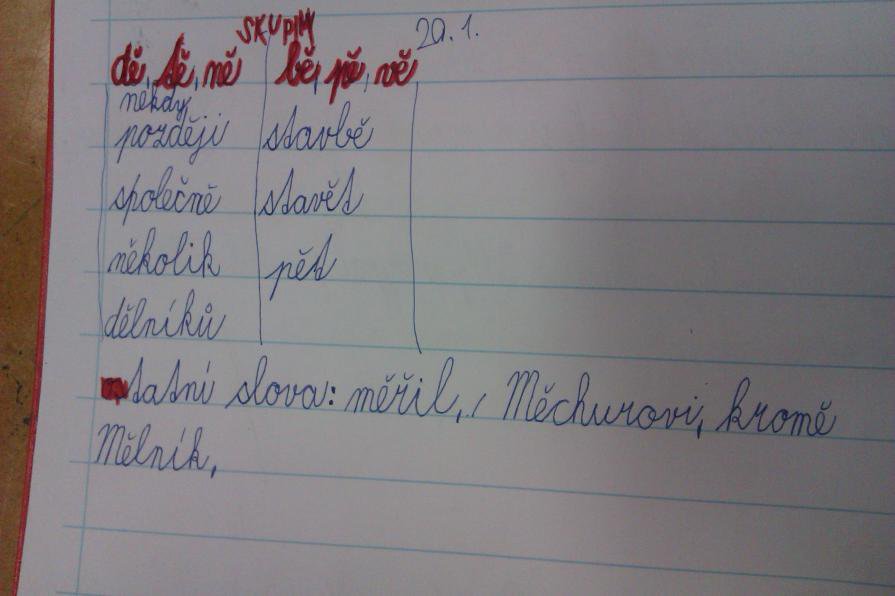 SKUPINY 20. 1.
dě, tě, ně bě, pě, vě
někdy
později stavbě
společně stavět
několik pět
dělníků
ostatní slova: měřil, Měchurovi, kromě
Mělník,